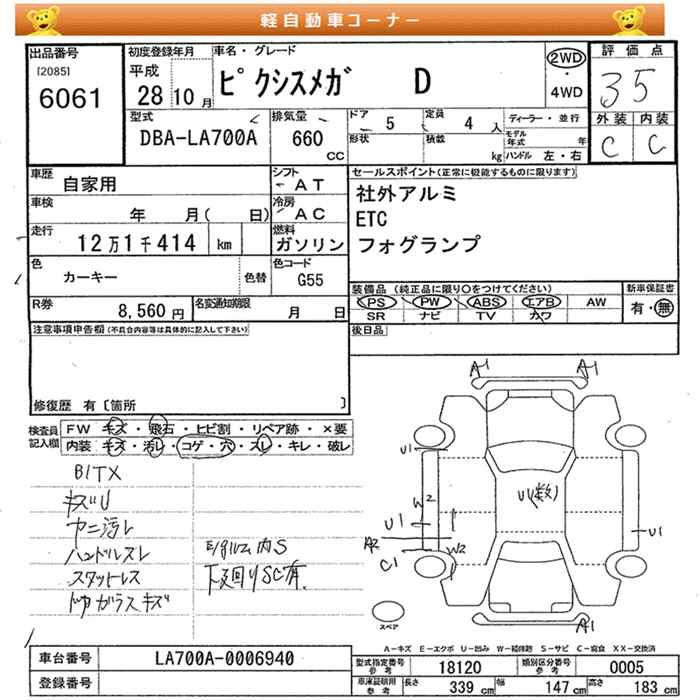 軽自動車コーナー
出品番号
[2085]
6061
初度登録年月
平成
28 10 月
車名・グレード
ピクシスメガ D
2WD
・
4WD
評価点
3 5
型式
DBA-LA700A
排気量
660
CC
ドア
5
形状
定員
4 人
積載
kg
ディーラー・並行
モデル年式 年
ハンドル 左・右
外装 内装
C C
車歴
自家用
シフト
AT
車検
年 月( 日)
冷房
AC
走行
12万1千414 km
燃料
ガソリン
色
カーキー
色替
色コード
G55
R券
8,560 円
名変通知期限
月 日
セールスポイント(正常に機能するものに限ります)
社外アルミ
ETC
フォグランプ
装備品 (純正品に限り○をつけてください)
PS PW ABS エアB AW
SR ナビ TV カワ
新車保証書
有・無
後日品
注意事項申告欄(不具合内容等は具体的に記入して下さい)
修復歴 有 [箇所 ]
検査員記入欄
FW キズ・飛石・ヒビ割・リペア跡・×要
内装 キズ・汚レ・コゲ・穴・スレ・キレ・破レ
BITX
キズU
ヤニ汚レ
ハンドルスレ
スタットレス
ドアガラスキズ
下廻りSC有.
A1 A1
U1
W2
U1
A2
C1
W2
U(数)
U1
A1
スペア
A-キズ E-エクボ U-凹み W-補修跡 S-サビ C-腐食 XX-交換済
車台番号
LA700A-0006940
登録番号
型式指定番号 参考
18120
類別区分番号 参考
0005
車庫証明用 参考
長さ 339 cm
幅 147 cm
高さ 183 cm